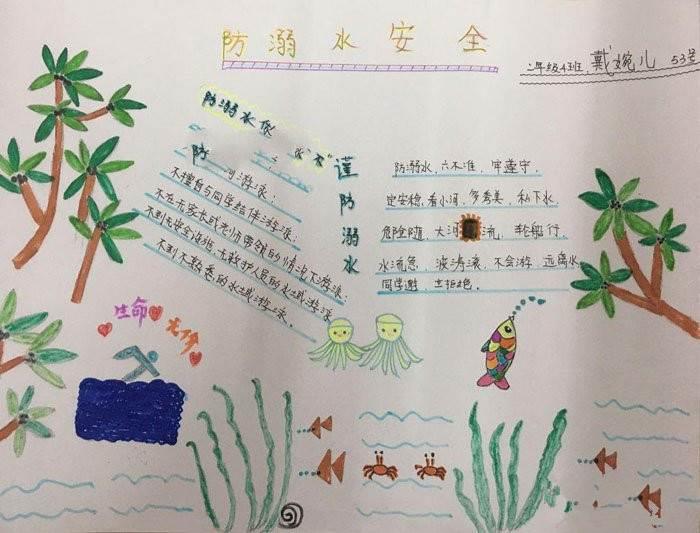 防溺水安全
二年级4班 戴婉儿 53号
防溺水
"不"
防 游泳;
不擅自与同学结伴游泳;
不在无家长或老师带领的情况下游泳;
不到无安全设施、无救护人员的水域游泳
不到不熟悉的水域游泳.
谨防溺水
防溺水,六不准,牢遵守
定安稳.看小河,多秀美,私下水
危险随,大河 流,轮船行,
水流急,波涛滚,不会游 远离水
同学邀
生命